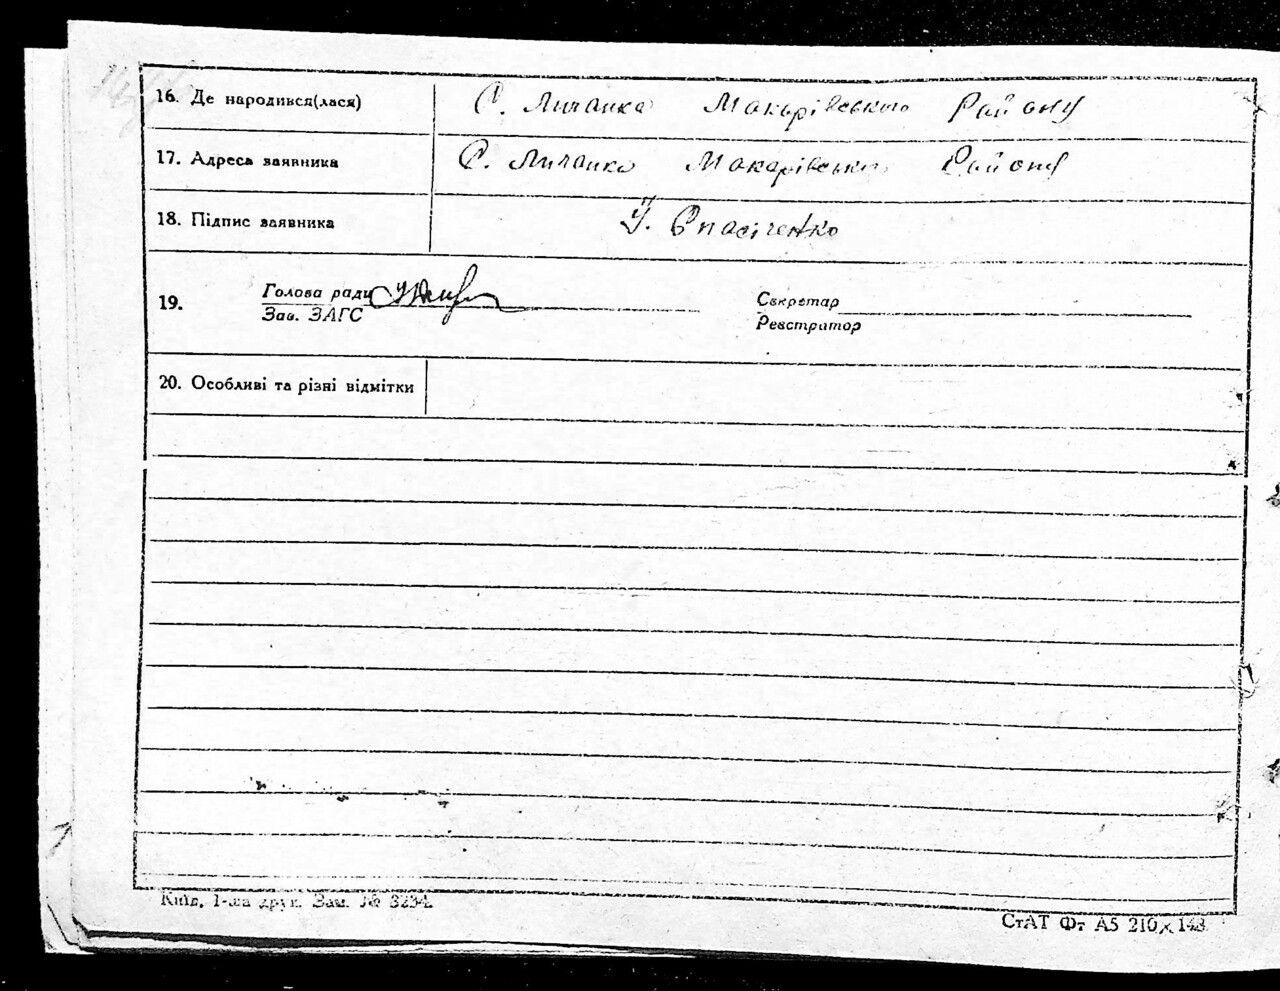 16. Де народився(лася) С. Личанка Макарівського Району
17. Адреса заявника С. Личанка Макарівського Району
18. Підпис заявника
19. Голова ради Секретар
Зав. ЗАГС Реєстратор
20. Особливі та різні відмітки
Київ, 1-ша друк. Зам. № 3234.
СтАТ Фт А5 210x148